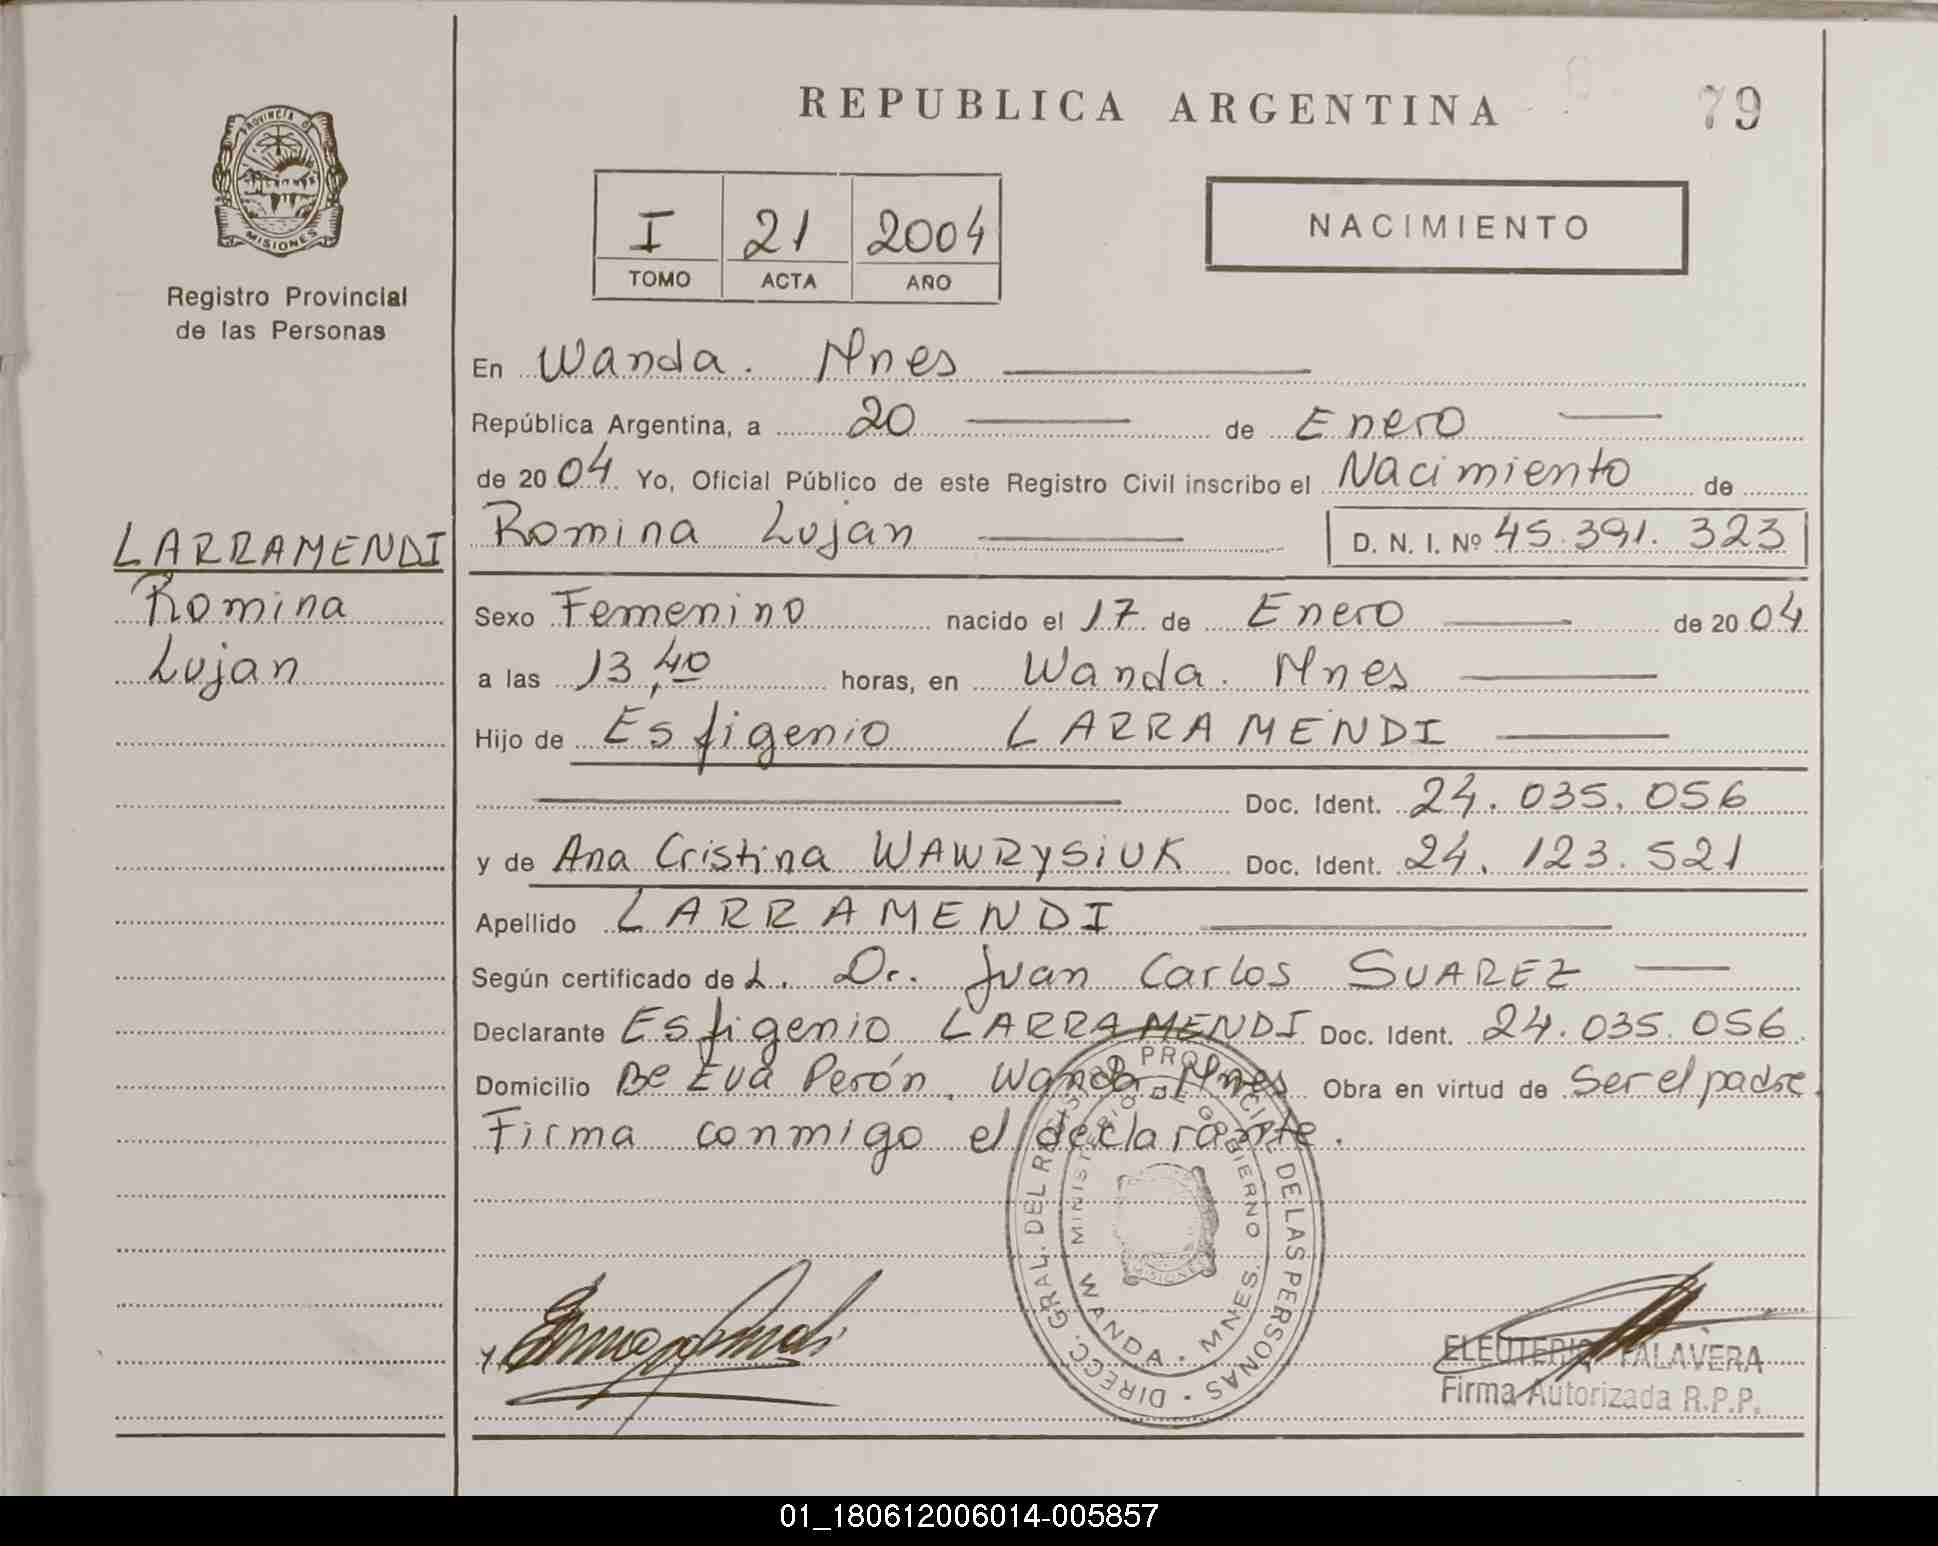 REPUBLICA ARGENTINA
79
PROVINCIA DE
MISIONES
Registro Provincial
de las Personas
I 21 2004
TOMO ACTA AÑO
NACIMIENTO
En Wanda. Mnes
República Argentina, a 20 de Enero
de 20 04 Yo, Oficial Público de este Registro Civil inscribo el Nacimiento de
Romina Lujan D. N. I. Nº 45.391.323
LARRAMENDI
Romina
Lujan
Sexo Femenino nacido el 17 de Enero de 20 04
a las 13,40 horas, en Wanda. Mnes
Hijo de Esfigenio LARRAMENDI
Doc. Ident. 24.035.056
y de Ana Cristina WAWRYSIUK Doc. Ident. 24.123.521
Apellido LARRAMENDI
Según certificado de L. Dr. Juan Carlos SUAREZ
Declarante Esfigenio LARRAMENDI Doc. Ident. 24.035.056.
Domicilio Be Eva Perón, Wanda Mnes Obra en virtud de Ser el padre.
Firma conmigo el declarante.
DIRECC. GRAL. DEL REGISTRO PROVINCIAL DE LAS PERSONAS
MINISTERIO DE GOBIERNO
MISIONES
WANDA - MNES.
ELEUTERIO TALAVERA
Firma Autorizada R.P.P.
01_180612006014-005857